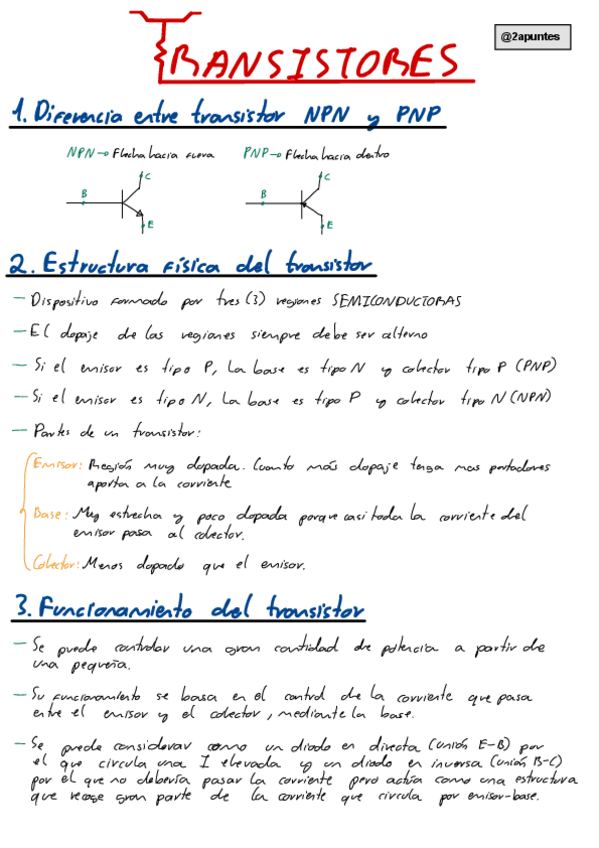 TRANSISTORES
@2apuntes
1. Diferencia entre transistor NPN y PNP
NPN → Flecha hacia fuera PNP → Flecha hacia dentro
C C
B B
E E
2. Estructura física del transistor
— Dispositivo formado por tres (3) regiones SEMICONDUCTORAS
— El dopaje de las regiones siempre debe ser alterno
— Si el emisor es tipo P, la base es tipo N y colector tipo P (PNP)
— Si el emisor es tipo N, la base es tipo P y colector tipo N (NPN)
— Partes de un transistor:
Emisor: Región muy dopada. Cuanto más dopaje tenga mas portadores
aporta a la corriente
Base: Muy estrecha y poco dopada porque casi toda la corriente del
emisor pasa al colector.
Colector: Menos dopado que el emisor.
3. Funcionamiento del transistor
— Se puede controlar una gran cantidad de potencia a partir de
una pequeña.
— Su funcionamiento se basa en el control de la corriente que pasa
entre el emisor y el colector, mediante la base.
— Se puede considerar como un diodo en directa (unión E-B) por
el que circula una I elevada y un diodo en inversa (unión B-C)
por el que no debería pasar la corriente pero actúa como una estructura
que recoge gran parte de la corriente que circula por emisor-base.